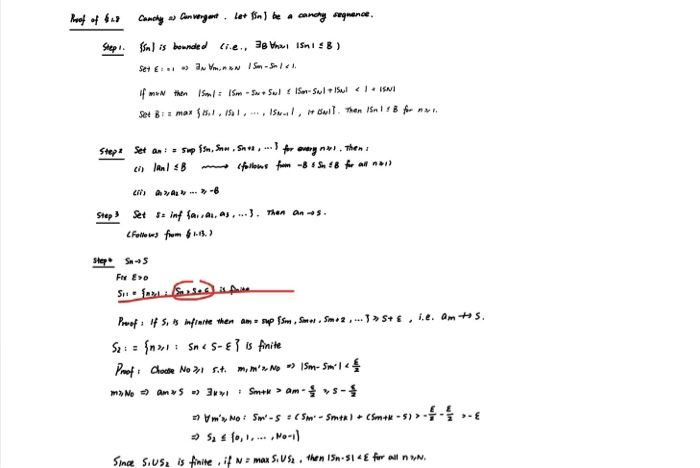 Proof of § 1.8 Cauchy => Convergent. Let {Sn} be a cauchy sequence.
Step 1. {Sn} is bounded (i.e., ∃B ∀n≥1 |Sn| ≤ B)
Set ε := 1 => ∃N ∀m,n≥N |Sm-Sn| < 1.
If m≥N then |Sm| = |Sm - SN + SN| ≤ |Sm-SN| + |SN| < 1 + |SN|
Set B := max {|S1|, |S2|, ..., |SN-1|, 1+|SN|}. Then |Sn| ≤ B for n≥1.
Step 2 Set an := sup {Sn, Sn+1, Sn+2, ...} for every n≥1. Then:
(i) |an| ≤ B ⟿ (follows from -B ≤ Sn ≤ B for all n≥1)
(ii) a1 ≥ a2 ≥ ... ≥ -B
Step 3 Set s = inf {a1, a2, a3, ...}. Then an → s.
(Follows from § 1.13.)
Step 4 Sn → S
Fix ε>0
S1 = {n≥1 : Sn > S+ε} is finite
Proof: If S1 is infinite then am = sup {Sm, Sm+1, Sm+2, ...} ≥ S+ε, i.e. am ↛ S.
S2 := {n≥1 : Sn < S-ε} is finite
Proof: Choose N0≥1 s.t. m,m'≥N0 => |Sm-Sm'| < ε/2
m≥N0 => am ≥ S => ∃k≥1 : Sm+k > am - ε/2 ≥ S - ε/2
=> ∀m'≥N0: Sm'-S = (Sm'-Sm+k) + (Sm+k-S) > -ε/2 - ε/2 > -ε
=> S2 ⊆ {0, 1, ..., N0-1}
Since S1∪S2 is finite, if N = max S1∪S2, then |Sn-S| < ε for all n≥N.